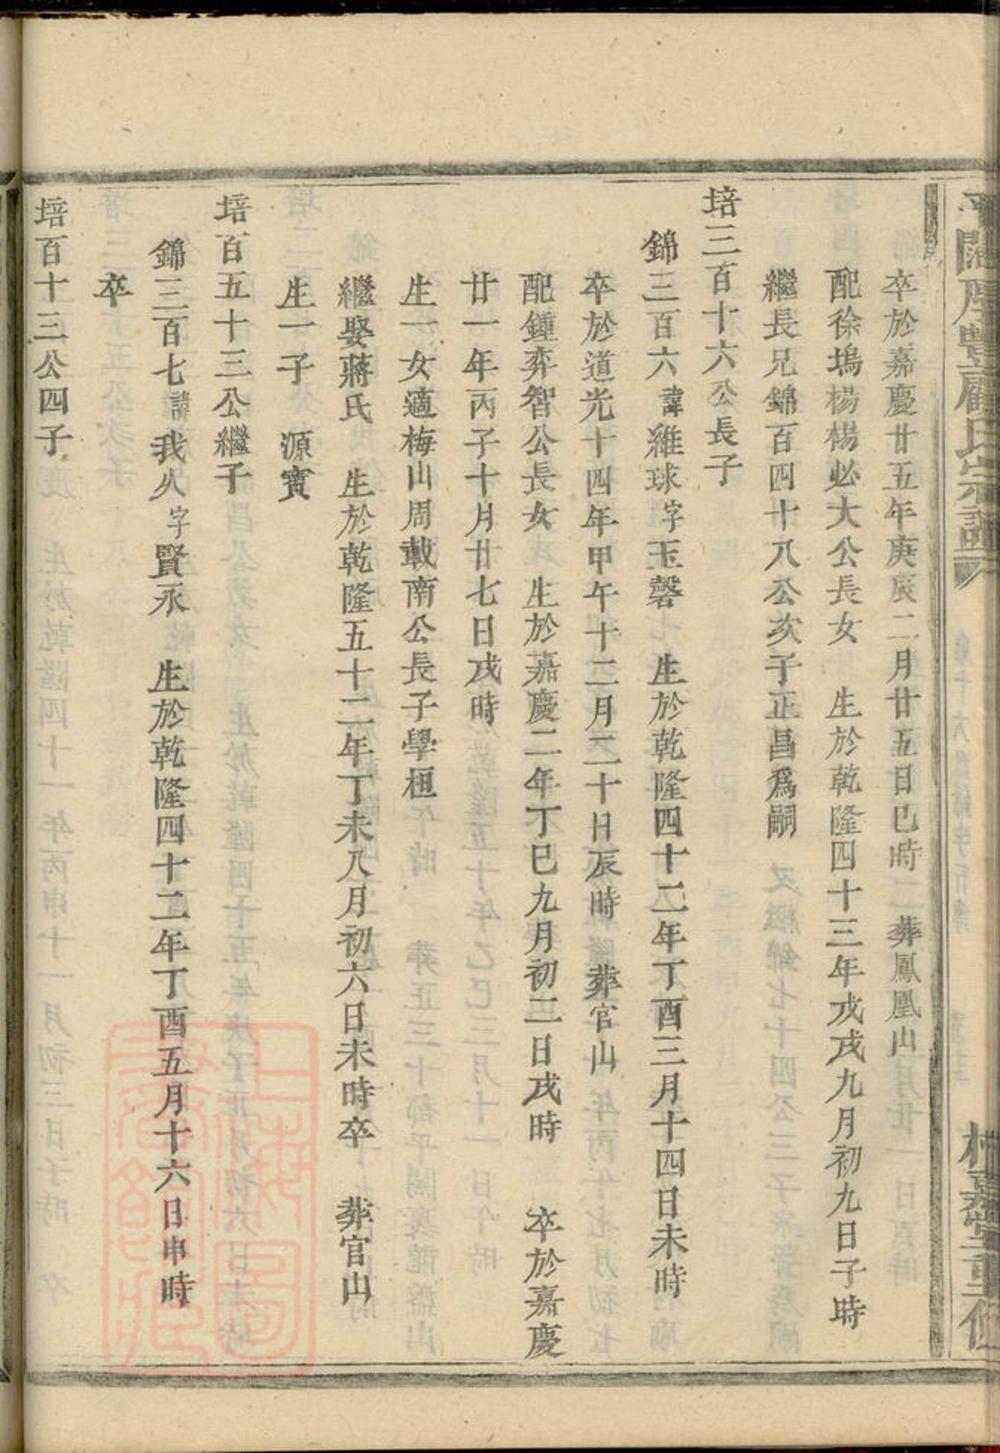 卒於嘉慶廿五年庚辰二月廿五日巳時 葬鳳凰山
配徐塢楊楊必大公長女 生於乾隆四十三年戊戌九月初九日子時
繼長兄錦百四十八公次子正昌爲嗣
培三百十六公長子
錦三百六諱維球字玉磬 生於乾隆四十二年丁酉三月十四日未時
卒於道光十四年甲午十二月二十日辰時 葬官山
配鍾弈智公長女 生於嘉慶二年丁巳九月初二日戌時 卒於嘉慶
廿一年丙子十月廿七日戌時
生一女適梅山周載南公長子學桓
繼娶蔣氏 生於乾隆五十二年丁未八月初六日未時卒 葬官山
生一子 源寶
培百五十三公繼子
錦三百七諱我火字賢永 生於乾隆四十二年丁酉五月十六日申時
卒
培百十三公四子